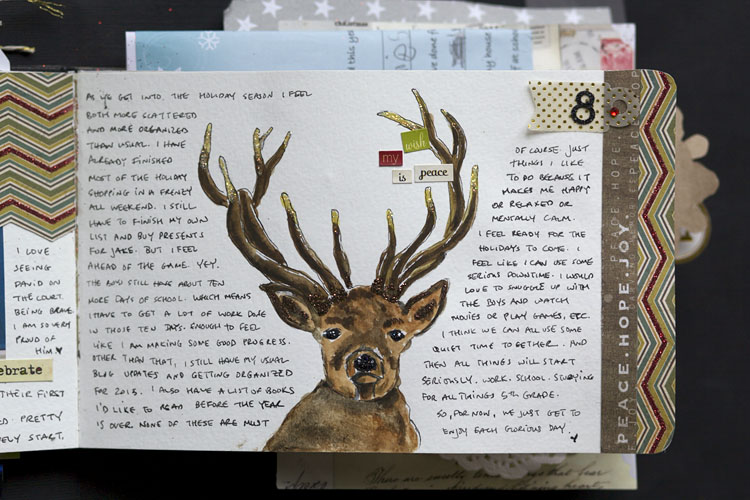 AS WE GET INTO THE HOLIDAY SEASON I FEEL
BOTH MORE SCATTERED
AND MORE ORGANIZED
THAN USUAL. I HAVE
ALREADY FINISHED
MOST OF THE HOLIDAY
SHOPPING IN A FRENZY
ALL WEEKEND. I STILL
HAVE TO FINISH MY OWN
LIST AND BUY PRESENTS
FOR JAKE. BUT I FEEL
AHEAD OF THE GAME. YEY.
THE BOYS STILL HAVE ABOUT TEN
MORE DAYS OF SCHOOL. WHICH MEANS
I HAVE TO GET A LOT OF WORK DONE
IN THOSE TEN DAYS. ENOUGH TO FEEL
LIKE I AM MAKING SOME GOOD PROGRESS.
OTHER THAN THAT, I STILL HAVE MY USUAL
BLOG UPDATES AND GETTING ORGANIZED
FOR 2013. I ALSO HAVE A LIST OF BOOKS
I'D LIKE TO READ BEFORE THE YEAR
IS OVER. NONE OF THESE ARE MUST
OF COURSE. JUST
THINGS I LIKE
TO DO BECAUSE IT
MAKES ME HAPPY
OR RELAXED OR
MENTALLY CALM.
I FEEL READY FOR THE
HOLIDAYS TO COME. I
FEEL LIKE I CAN USE SOME
SERIOUS DOWNTIME. I WOULD
LOVE TO SNUGGLE UP WITH
THE BOYS AND WATCH
MOVIES OR PLAY GAMES, ETC.
I THINK WE CAN ALL USE SOME
QUIET TIME TOGETHER. AND
THEN ALL THINGS WILL START
SERIOUSLY. WORK. SCHOOL. STUDYING
FOR ALL THINGS 5TH GRADE.
SO, FOR NOW, WE JUST GET TO
ENJOY EACH GLORIOUS DAY.
my wish
is peace
8
PEACE.HOPE.JOY.
PEACE.HOPE.
I LOVE
SEEING
DAVID ON
THE COURT.
BEING BRAVE.
I AM SO VERY
PROUD OF
HIM
ebrate
THEIR FIRST
PRETTY
START,
christmas